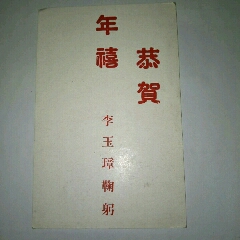 恭賀
年禧
李玉璋鞠躬